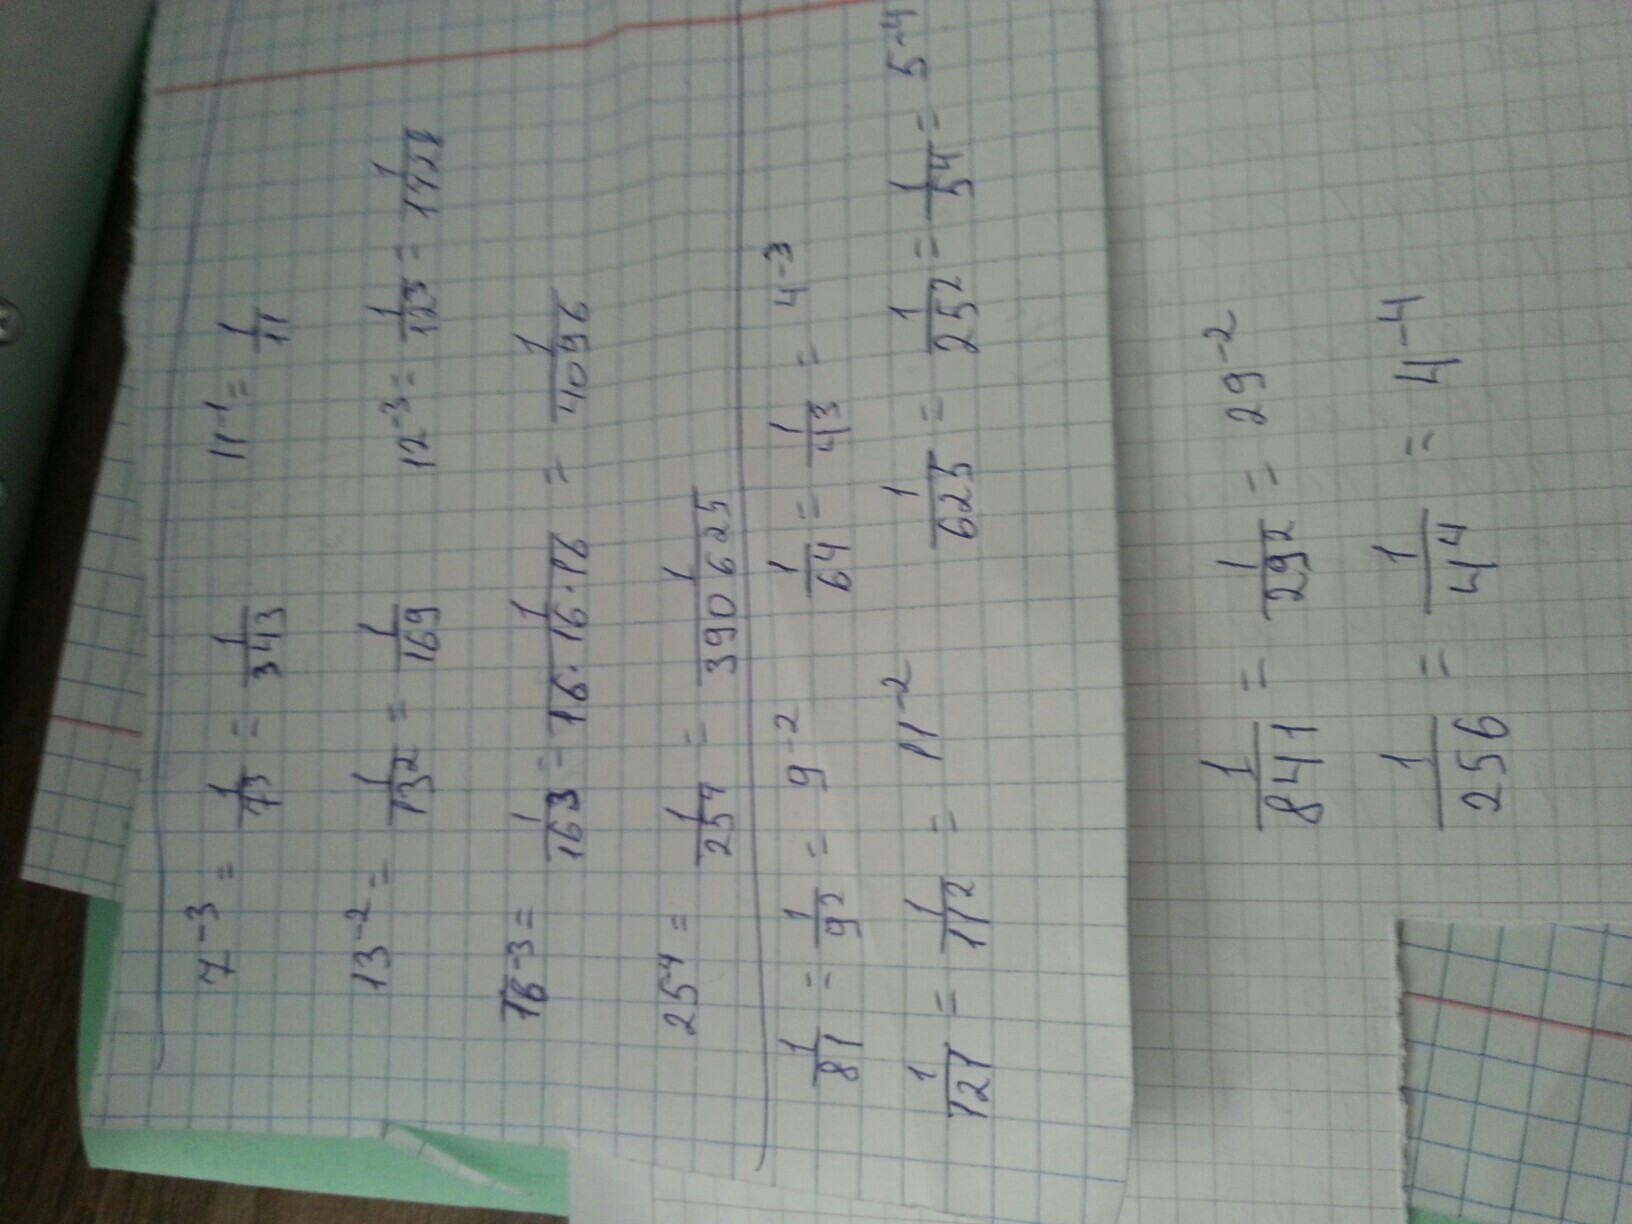 7⁻³ = 1/7³ = 1/343 11⁻¹ = 1/11
13⁻² = 1/13² = 1/169 12⁻³ = 1/12³ = 1/1428
16⁻³ = 1/16³ = 1/16·16·16 = 1/4096
25⁻⁴ = 1/25⁴ = 1/390625
1/81 = 1/9² = 9⁻² 1/64 = 1/4³ = 4⁻³
1/121 = 1/11² = 11⁻² 1/625 = 1/25² = 1/5⁴ = 5⁻⁴
1/841 = 1/29² = 29⁻²
1/256 = 1/4⁴ = 4⁻⁴